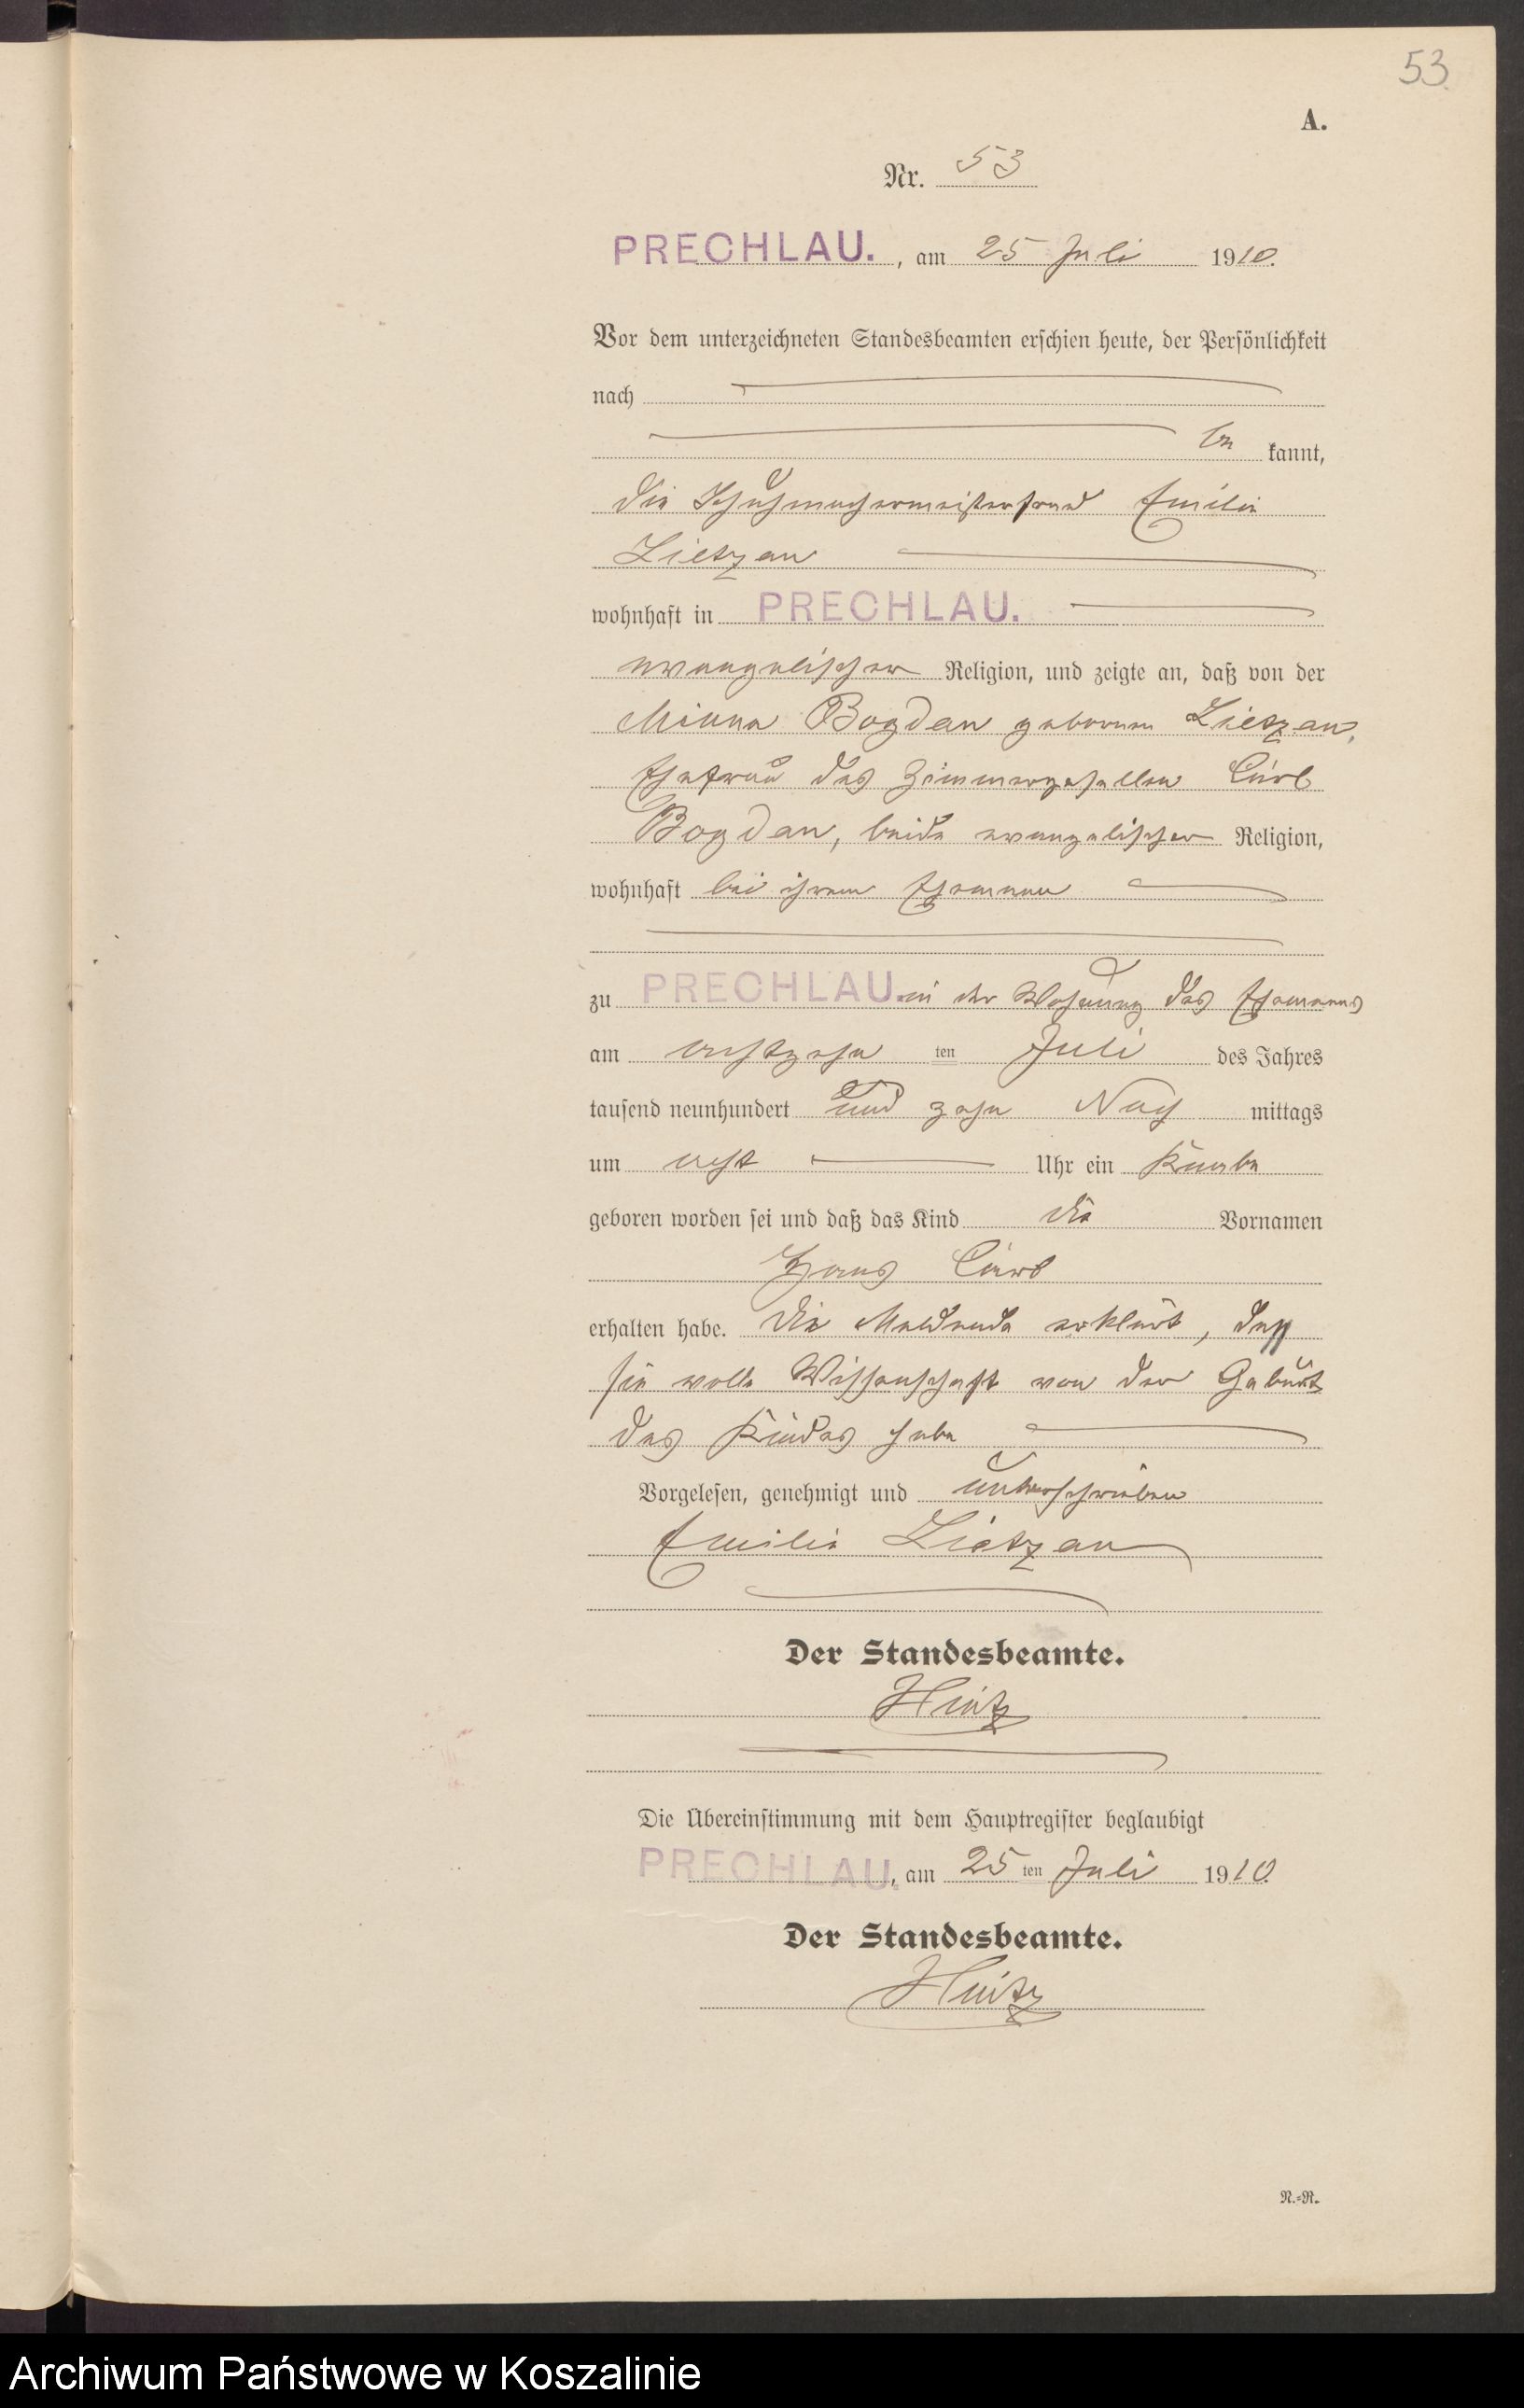 53.
A.
Nr. 53
PRECHLAU. , am 25 Juli 1910.
Vor dem unterzeichneten Standesbeamten erschien heute, der Persönlichkeit
nach
be kannt,
die Schuhmachermeisterfrau Emilie
Lietzau
wohnhaft in PRECHLAU.
evangelischer Religion, und zeigte an, daß von der
Minna Bogdan geborenen Lietzau,
Ehefrau des Zimmergesellen Curt
Bogdan, beide evangelischer Religion,
wohnhaft bei ihrem Ehemann
zu PRECHLAU. in der Wohnung des Ehemanns
am achtzehn ten Juli des Jahres
tausend neunhundert und zehn Nach mittags
um acht Uhr ein Knabe
geboren worden sei und daß das Kind die Vornamen
Hans Curt
erhalten habe. Die Meldende erklärt, daß
sie volle Wissenschaft von der Geburt
des Kindes habe
Vorgelesen, genehmigt und unterschrieben
Emilie Lietzau
Der Standesbeamte.
Hintz
Die Übereinstimmung mit dem Hauptregister beglaubigt
PRECHLAU. , am 25 ten Juli 1910.
Der Standesbeamte.
Hintz
N.=R.
Archiwum Państwowe w Koszalinie